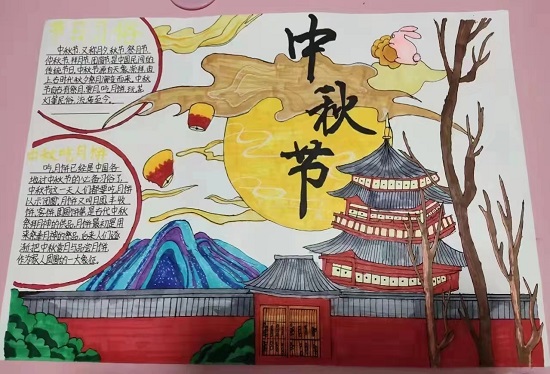 中秋节
中秋节,又称月夕,秋节,祭月节
仲秋节,拜月节,团圆节,是中国民间的
传统节日,中秋节源自天象崇拜,由
上古时代秋夕祭月演变而来。中秋
节自古有祭月,赏月,吃月饼,玩花
灯等民俗,流传至今。
中秋吃月饼
吃月饼已经是中国各
地过中秋节的必备习俗了,
中秋节这一天人们都要吃月饼
以示团圆,月饼又叫月团、丰收
饼、宫饼、团圆饼等是古代中秋
祭拜月神的供品,月饼最初是用
来祭奉月神的祭品,后来人们逐
渐把中秋赏月与品尝月饼,
作为家人团圆的一大象征。